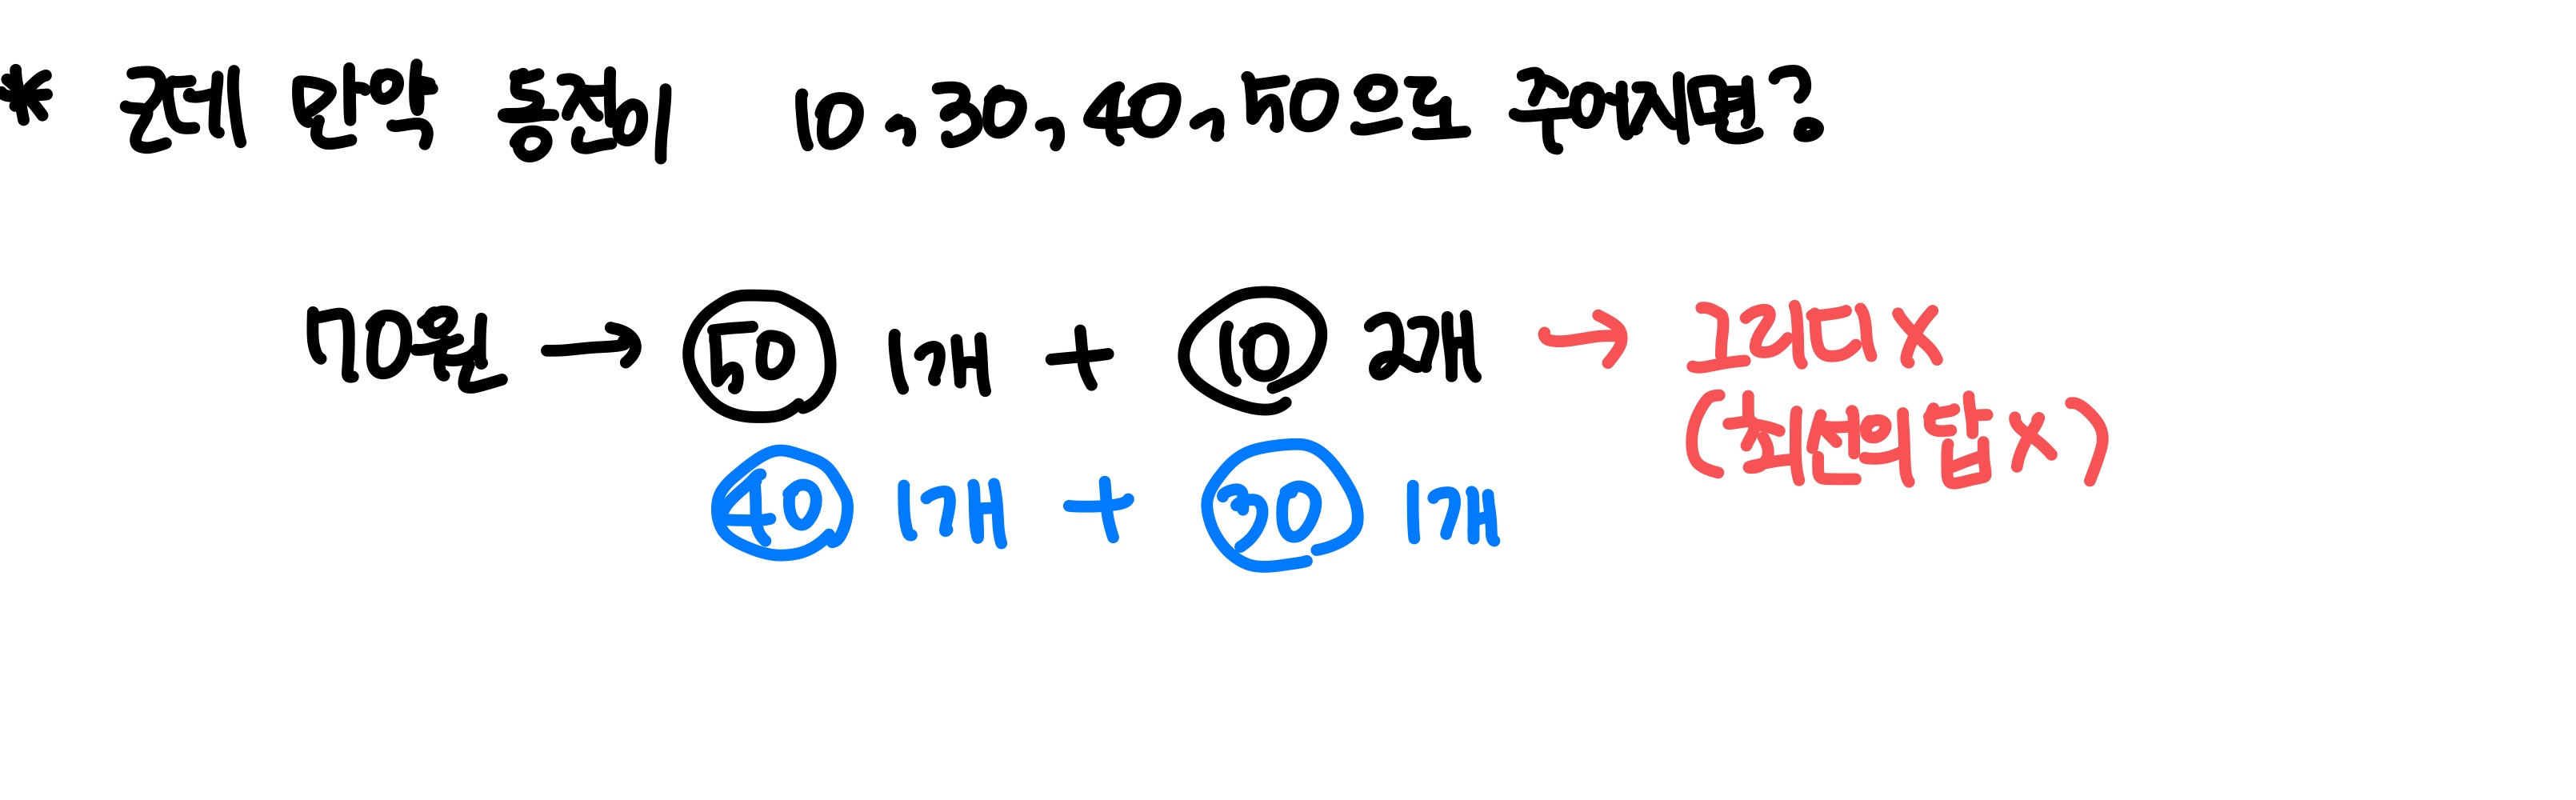 * 근데 만약 동전이 10, 30, 40, 50으로 주어지면?
70원 → 50 1개 + 10 2개 → 그리디 X
(최선의 답 X)
40 1개 + 30 1개